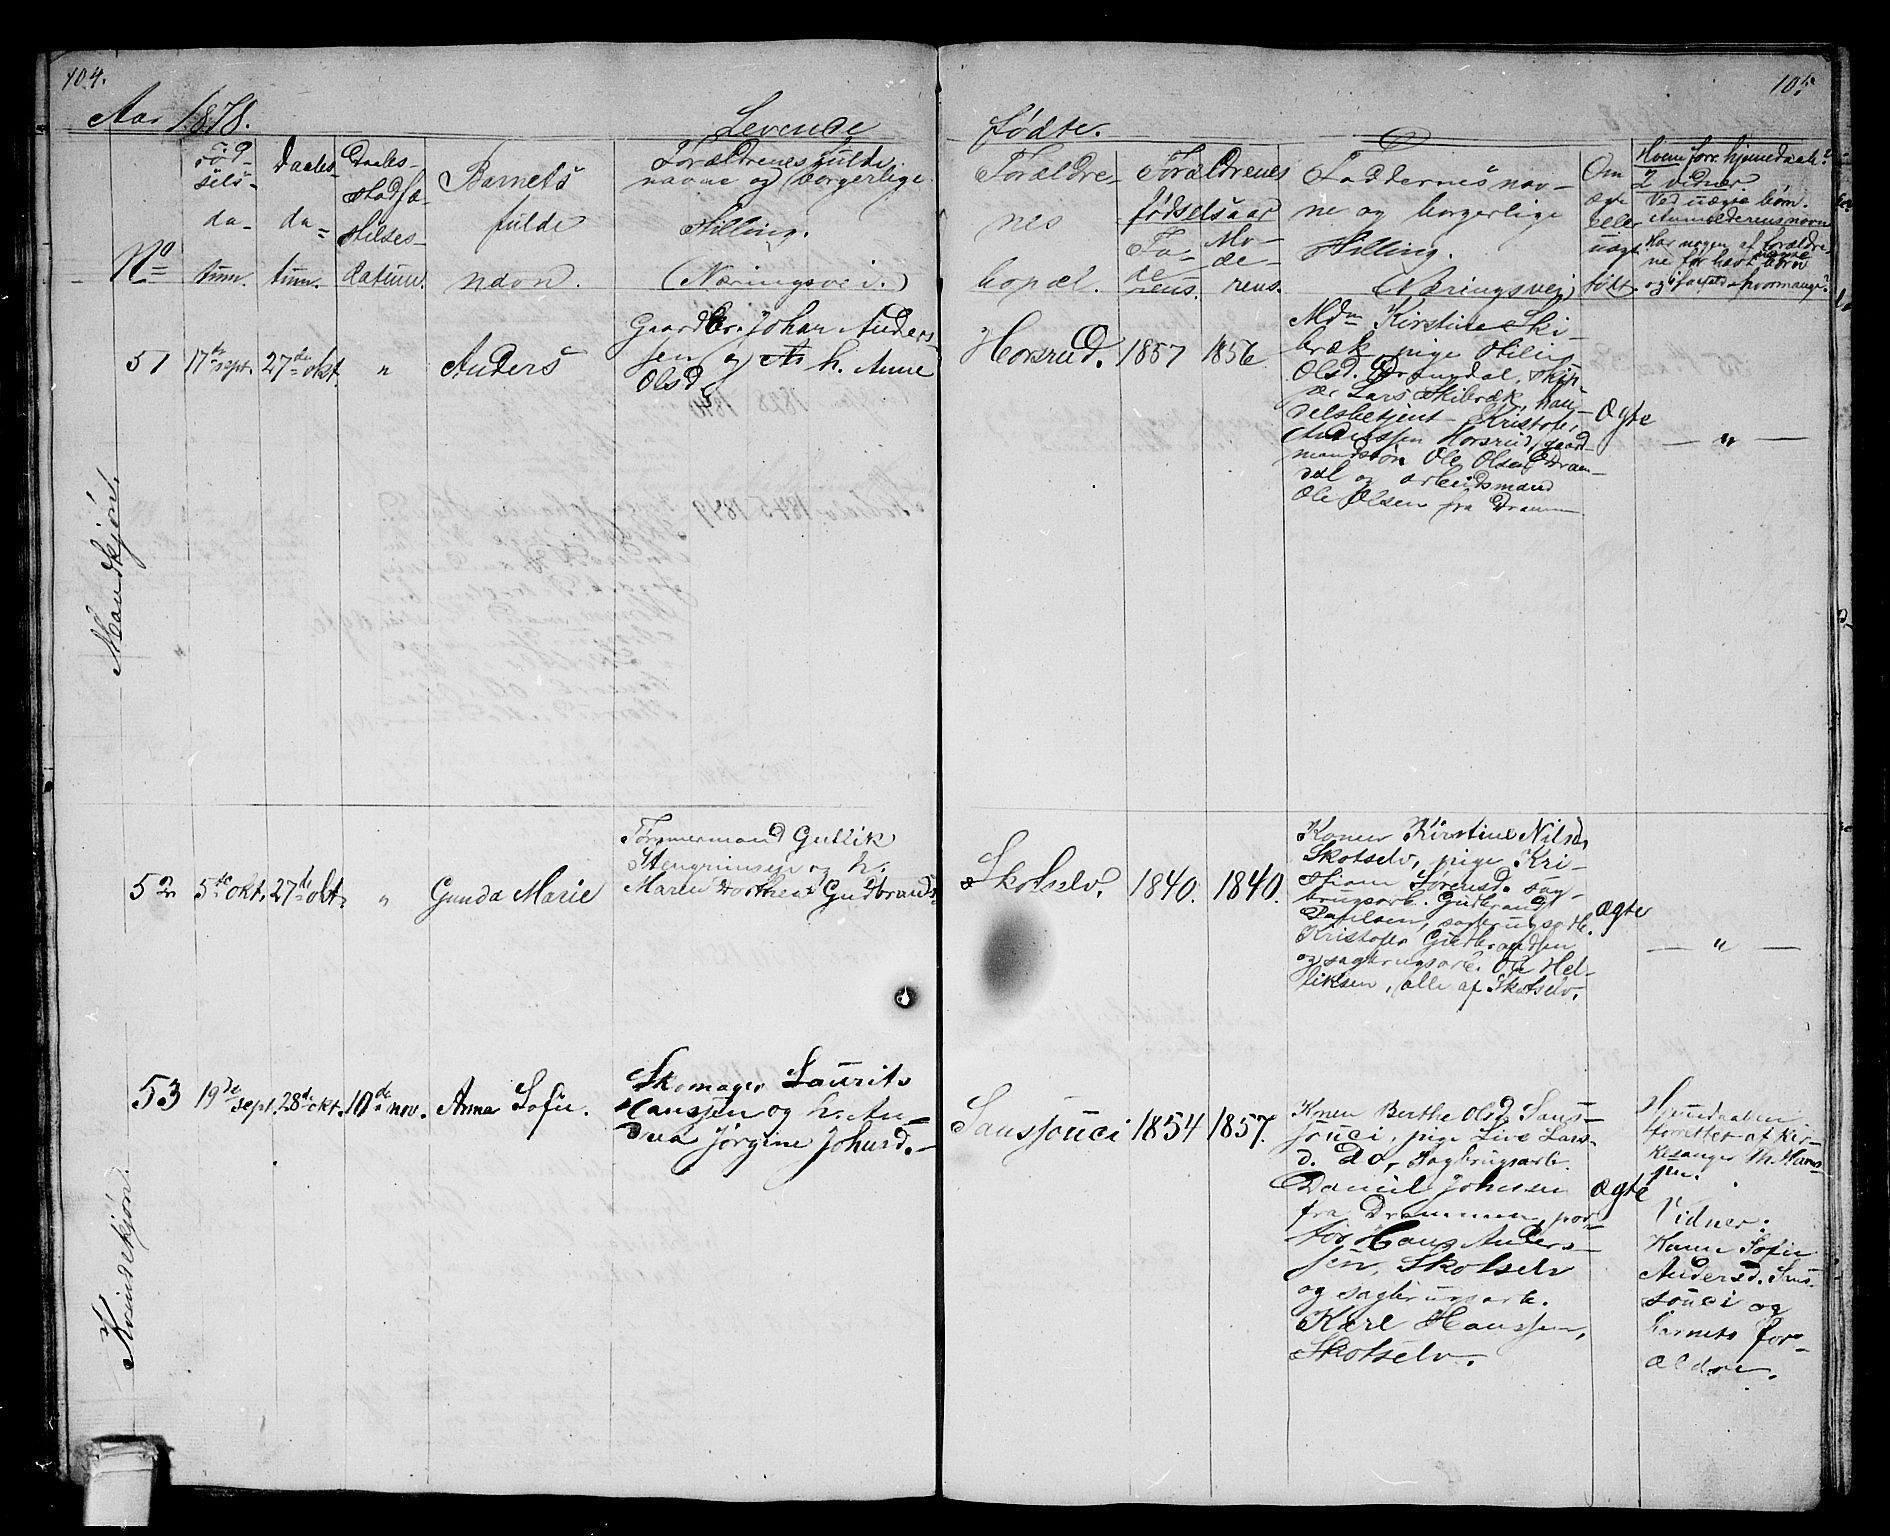 104.
105
Aar 1878.
Levende
fødte.
No
Fød-
sels-
da-
tum.
Daabs-
da-
tum.
Daabs-
stadfæ-
stelses-
datum.
Barnets
fulde
navn.
Forældrenes fulde
navne og borgerlige
Stilling.
(Næringsvei.)
Forældre-
nes
bopæl.
Forældrenes
fødselsaar
Fa-
de-
rens.
Mo-
de-
rens.
Faddernes nav-
ne og borgerlige
Stilling.
(Næringsvei)
Om
ægte
eller
uægte
født.
Hvem forr. hjemmedaab?
2 vidner.
Ved uægte børn.
Anmelderens navn
Har nogen af Forældre-
ne før havt uægte børn
og i saafald hvormange?
Mandkjøn.
51
17de sept.
27de okt.
"
Anders
Gaardbr. Johan Anders-
sen og h. Anne
Olsd.
Horsrud.
1857
1856
Mdm Kirstine Ski-
bræk, pige
Olsd. Dramdal, skip-
per Lars Skibræk, han-
delsbetjent Kristofer
Anderssen Horsrud, gaard-
mandssøn Ole Olsen Dram-
dal og arbeidsmand
Ole Olsen fra Dramm
ægte
— " —
52
5te okt.
27de okt.
"
Gunda Marie
Tømmermand Gullik
Stengrimsen og h.
Maren Dorthea Gudbrandsd.
Skotselv.
1840.
1840.
Konen Kirstine Nilsd.
Skotselv, pige Kri-
stiane Sørensd. sag-
brugsarb. Gudbrand
Paulsen, sagbrugsarb.
Kristofer Gudbrandsen
og sagbrugsarb. Ole Hel-
liksen, alle af Skotselv.
ægte
— " —
Kvindekjøn.
53
19de sept.
28de okt.
10de nov.
Anna Sofie.
Skomager Laurits
Hanssen og h. An-
drea Jørgine Johansd.
Sanssouci
1854
1857.
Konen Berthe Olsd. Sans-
souci, pige Live Lars-
d. do, sagbrugsarb.
Daniel Johnsen
fra Drammen, por-
tør Hans Anders-
sen, Skotselv
og sagbrugsarb.
Karl Hanssen,
Skotselv.
ægte
Hjemdaaben
forrettet af Kir-
kesanger M. Hans-
sen.
Vidner:
Konen Sofie
Andersd. Sans-
souci og
barnets for-
ældre.